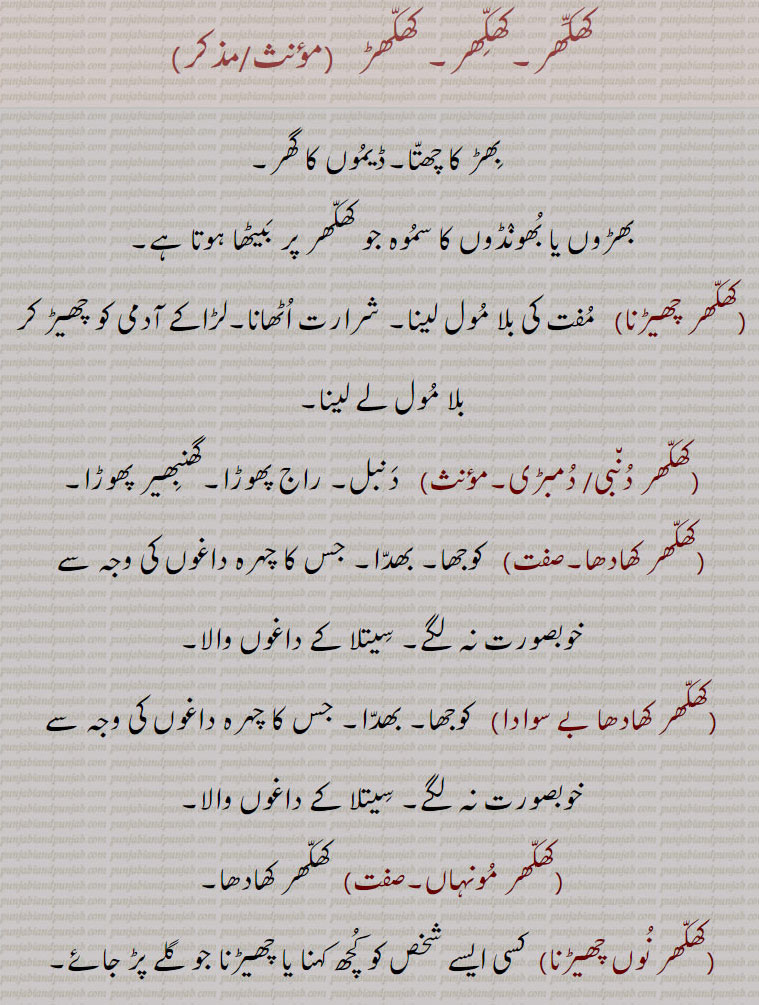 کھکّھر ۔ کھکِّھر ۔ کھکّھڑ (مؤنث/مذکر)
بِھڑ کا چھتّا۔ ڈیمُوں کا گھر ۔
بھڑوں یا بُھونْڈوں کا سمُوہ جو کھکّھر پر بَیٹھا ہوتا ہے۔
(کھکّھر چھیڑنا) مُفت کی بلا مُول لینا۔ شرارت اُٹھانا۔لڑاکے آدمی کو چھیڑ کر
بلا مُول لے لینا۔
(کھکّھر دُنّبی/ دُمبڑی۔مؤنث) دَنبل۔ راج پھوڑا۔گھنبِھیر پھوڑا۔
(کھکّھر کھادھا۔صفت) کوجھا۔ بھدّا۔ جس کا چہرہ داغوں کی وجہ سے
خوبصورت نہ لگے۔ سِیتلا کے داغوں والا۔
(کھکّھر کھادھا بے سوادا) کوجھا۔ بھدّا۔ جس کا چہرہ داغوں کی وجہ سے
خوبصورت نہ لگے۔ سِیتلا کے داغوں والا۔
(کھکّھر مُونہاں۔صفت) کھکّھر کھادھا۔
(کھکّھر نُوں چھیڑنا) کسی ایسے شخص کو کُچھ کہنا یا چھیڑنا جو گلے پڑ جائے۔